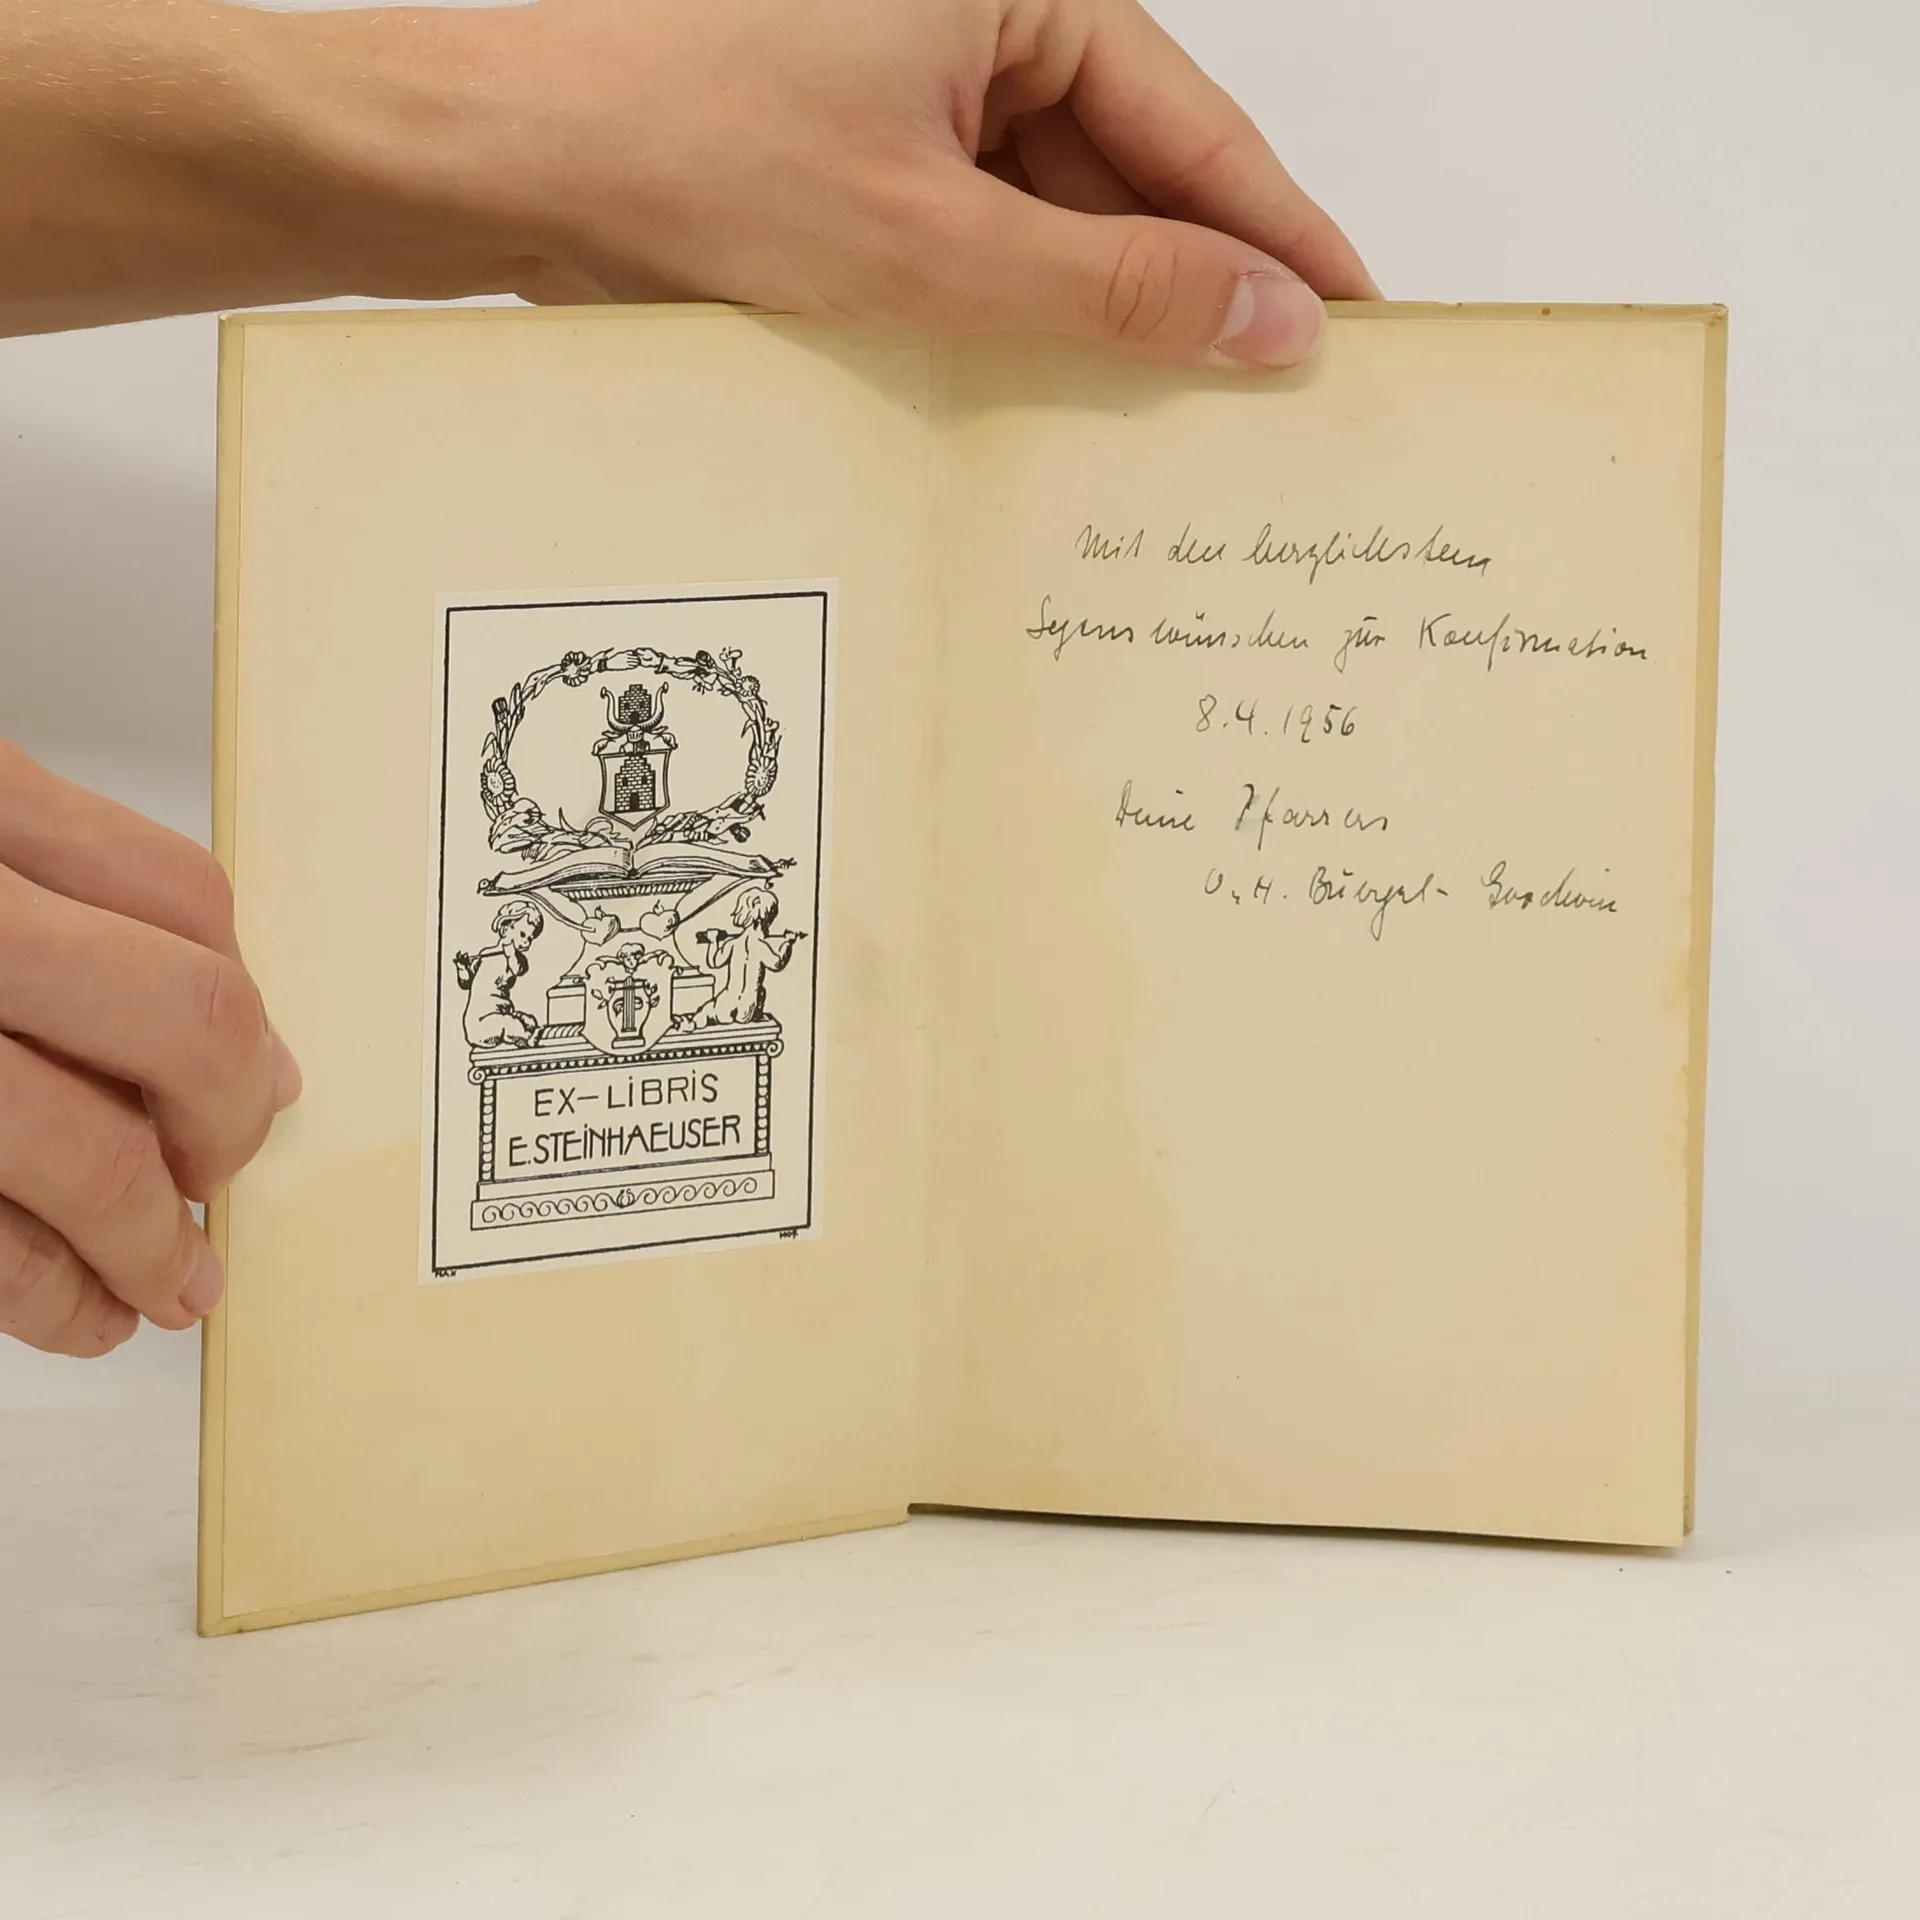 EX-LIBRIS
E.STEINHAEUSER
MAX
Mit den herzlichsten
Segenswünschen zur Konfirmation
8.4.1956
Deine Pfarrers
H.